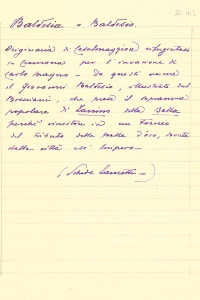 Baldesia o Baldesio.
Originaria di Casalmaggiore rifugiatasi
in Cremona per l'invasione di
Carlo Magno - Da questi venne
il Giovanni Baldesio, illustrato dal
Bresciani, che prese il soprannome
popolare di Zanino della Balla
perchè vincitore in un Torneo
del tributo della palla d'oro, dovuta
della città all'Impero.
(Schede Lancetti)